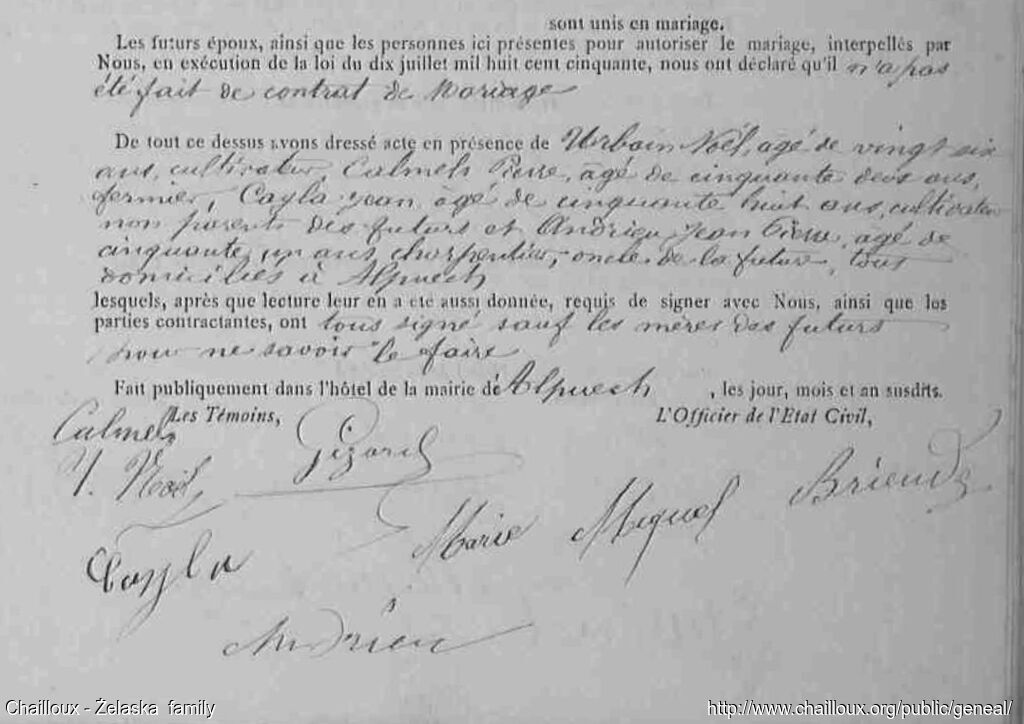 sont unis en mariage.
Les futurs époux, ainsi que les personnes ici présentes pour autoriser le mariage, interpellés par
Nous, en exécution de la loi du dix juillet mil huit cent cinquante, nous ont déclaré qu'il n'a pas
été fait de contrat de Mariage
De tout ce dessus avons dressé acte en présence de Urbain Noël, agé de vingt six
ans, cultivateur, Calmels Pierre, âgé de cinquante deux ans,
fermier, Cayla Jean âgé de cinquante huit ans, cultivateur
non parents des futurs et Andrieu Jean Pierre, âgé de
cinquante un ans, charpentier, oncle de la future, tous
domiciliés à Alpuech
lesquels, après que lecture leur en a été aussi donnée, requis de signer avec Nous, ainsi que les
parties contractantes, ont tous signé sauf les mères des futurs
pour ne savoir le faire
Fait publiquement dans l'hôtel de la mairie de Alpuech, les jour, mois et an susdits.
Les Témoins, L'Officier de l'Etat Civil,
Calmels
U. Noël
Cayla
Marie Miquel
Andrieu
Chailloux - Żelaska family http://www.chailloux.org/public/geneal/